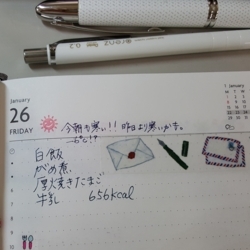 January
26
FRIDAY
1 January
今朝も寒い!! 昨日より寒いかも。
-6℃!?
白飯
がめ煮
厚焼きたまご
牛乳 656kcal